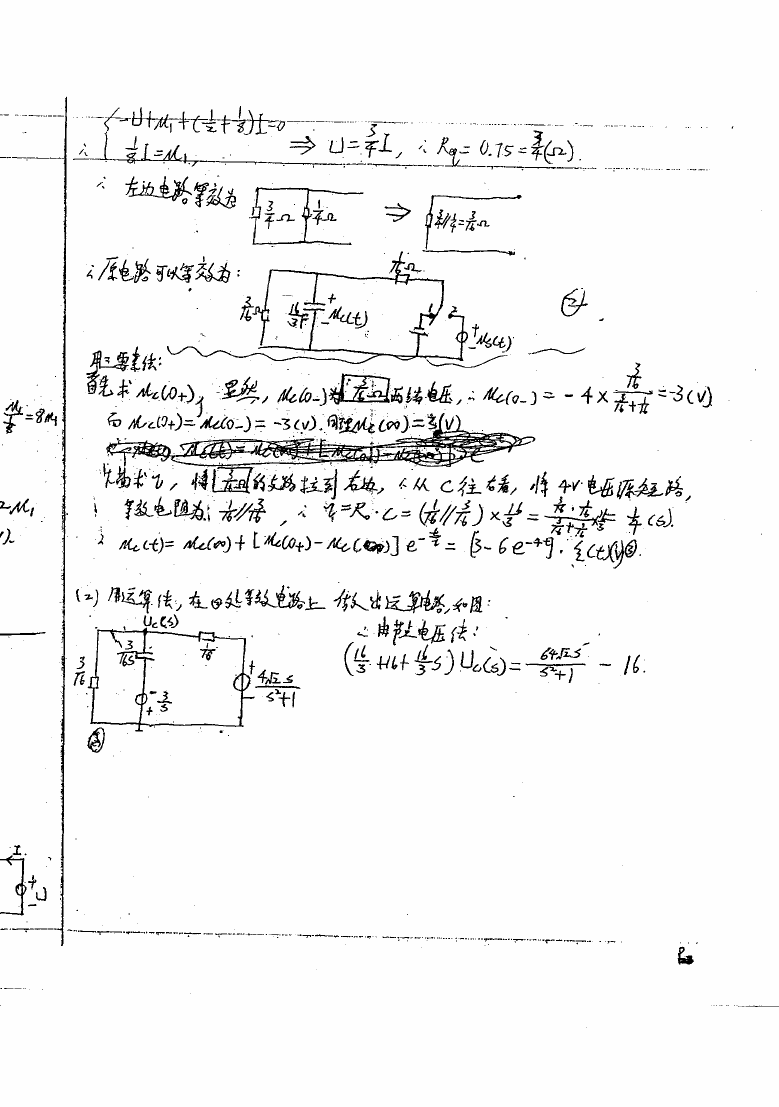 -U+u₁+(1/2+1/8)I=0
∴ 1/8 I=u₁, ⇒ U=3/4 I, ∴ Req= 0.75=3/4(Ω).
∴ 左边电路等效为 3/4Ω 1/4Ω ⇒ 3/4//1/4=3/16Ω
∴ 原电路可以等效为:
1/16Ω
3/16Ω 16/3F + - uc(t) 1 2 + - us(t)
②
用三要素法:
首先求 uc(0+), 显然, uc(0-)为 3/16Ω 两端电压, ∴ uc(0-) = -4× (3/16)/(3/16+1/16) = -3(V)
而 uc(0+)= uc(0-) = -3(V). 同理uc(∞)=3(V)
次而求τ, 将 3/16Ω 的支路拉到右边, ∴从C往右看, 将4V电压源短路,
等效电阻为: 1/16//3/16, ∴ τ=R₀·C=(1/16//3/16)×16/3 = (3/16·1/16)/(3/16+1/16)×16/3= 1/4(s).
∴ uc(t)= uc(∞)+[uc(0+)-uc(∞)]e^(-t/τ) = [3-6e^(-4t)]·ε(t)(V)
(2) 用运算法, 在②处等效电路上做出运算电路,如图:
Uc(s)
∴ 由节点电压法:
(16/3+16+16/3 s)Uc(s)= 64√2s/(s²+1) - 16.
3/16 3/16s 1/16 + - 4√2s/(s²+1)
- 3/s +
③
uc/(1/8)=8u₁
-u₁
I
+ U -